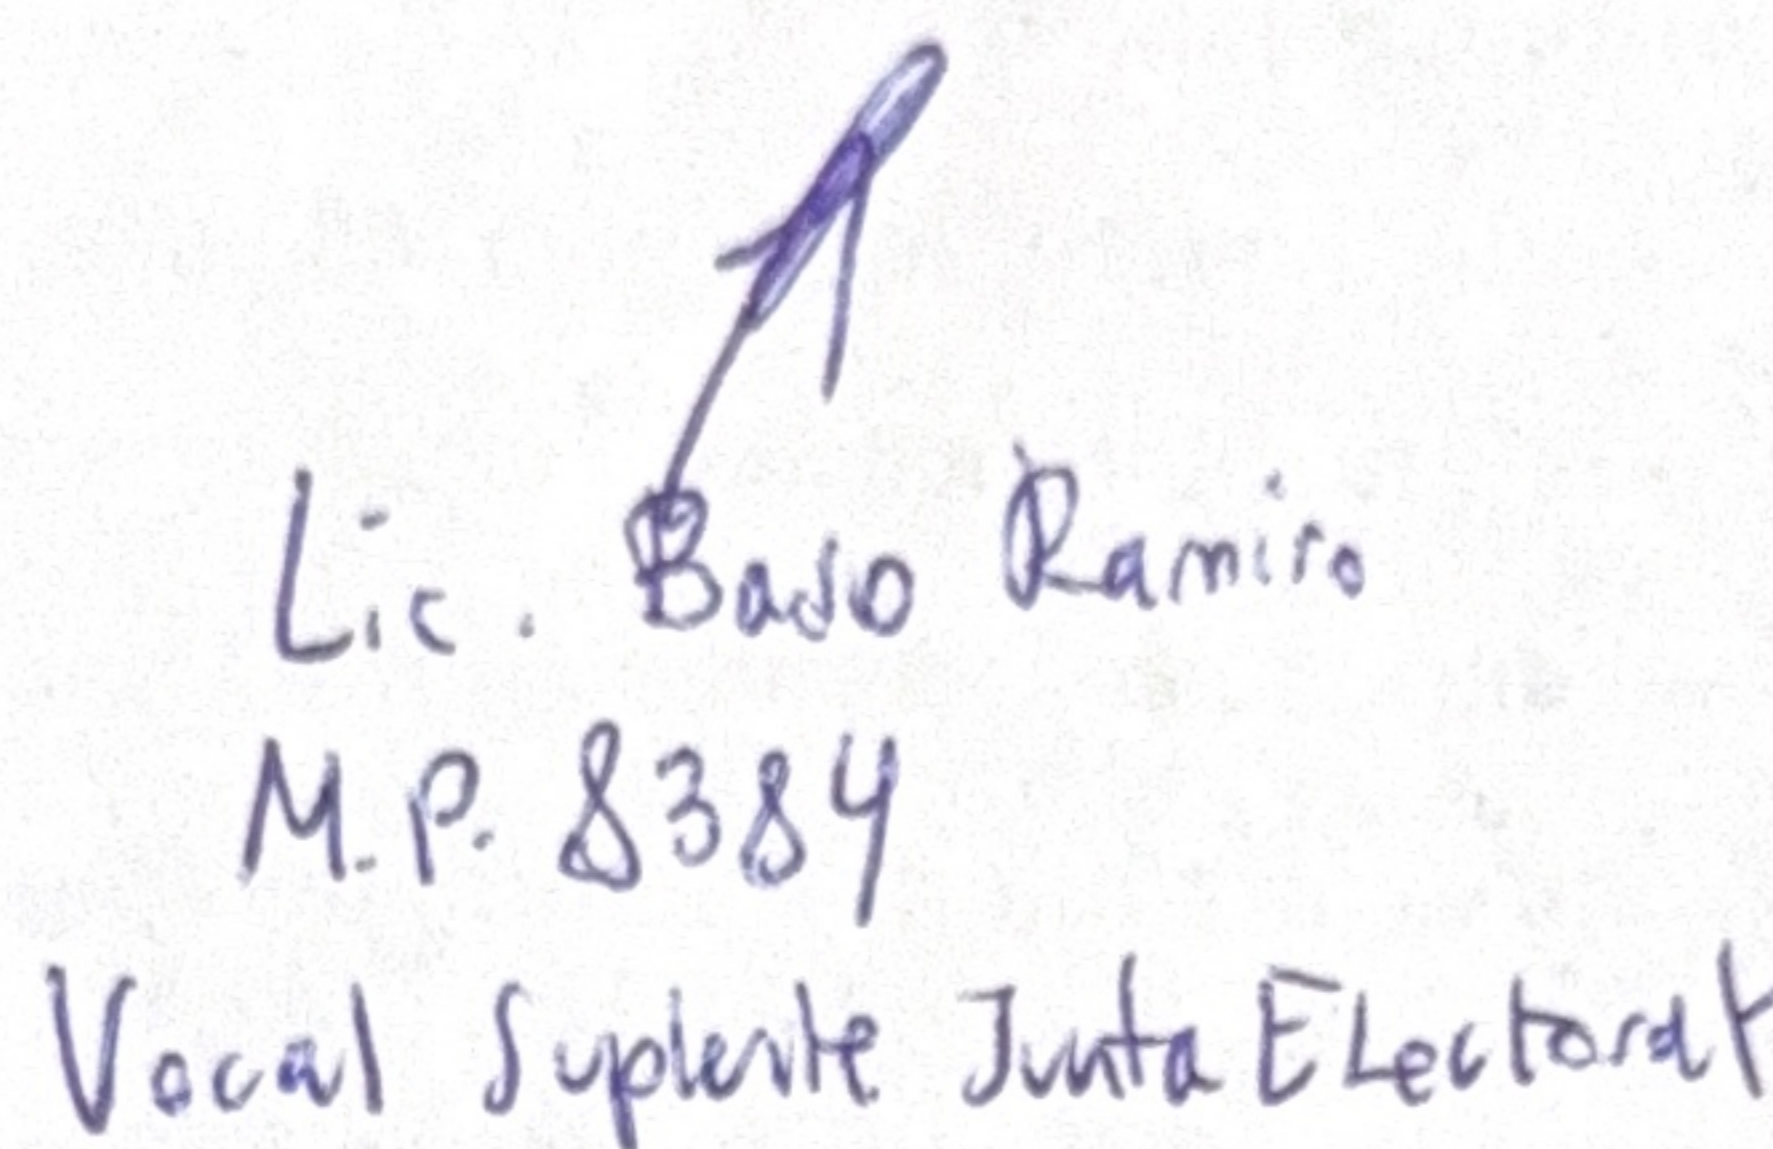 Lic. Baso Ramiro
M.P. 8384
Vocal Suplente Junta Electoral